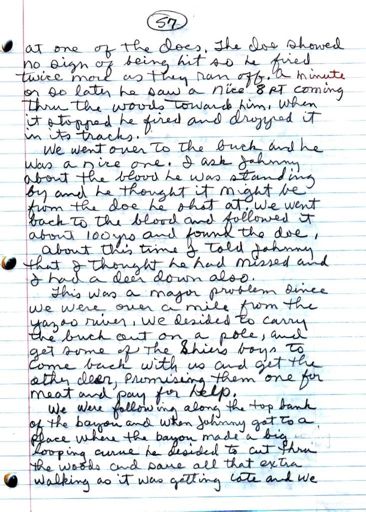 57
at one of the does. The doe showed
no sign of being hit so he fired
twice more as they ran off. A minute
or so later he saw a nice 8 pt coming
thru the woods towards him. When
it stopped he fired and dropped it
in its tracks.
We went over to the buck and he
was a nice one. I ask Johnny
about the blood he was standing
by and he thought it might be
from the doe he shot at. We went
back to the blood and followed it
about 100 yds and found the doe.
About this time I told Johnny
that I thought he had missed and
I had a deer down also.
This was a major problem since
we were over a mile from the
yazoo river. We decided to carry
the buck out on a pole, and
get some of the Shiers boys to
come back with us and get the
other deer, Promising them one for
meat and pay for help.
We were following along the top bank
of the bayou and when Johnny got to a
place where the bayou made a big
looping curve he decided to cut thru
the woods and save all that extra
walking as it was getting late and we